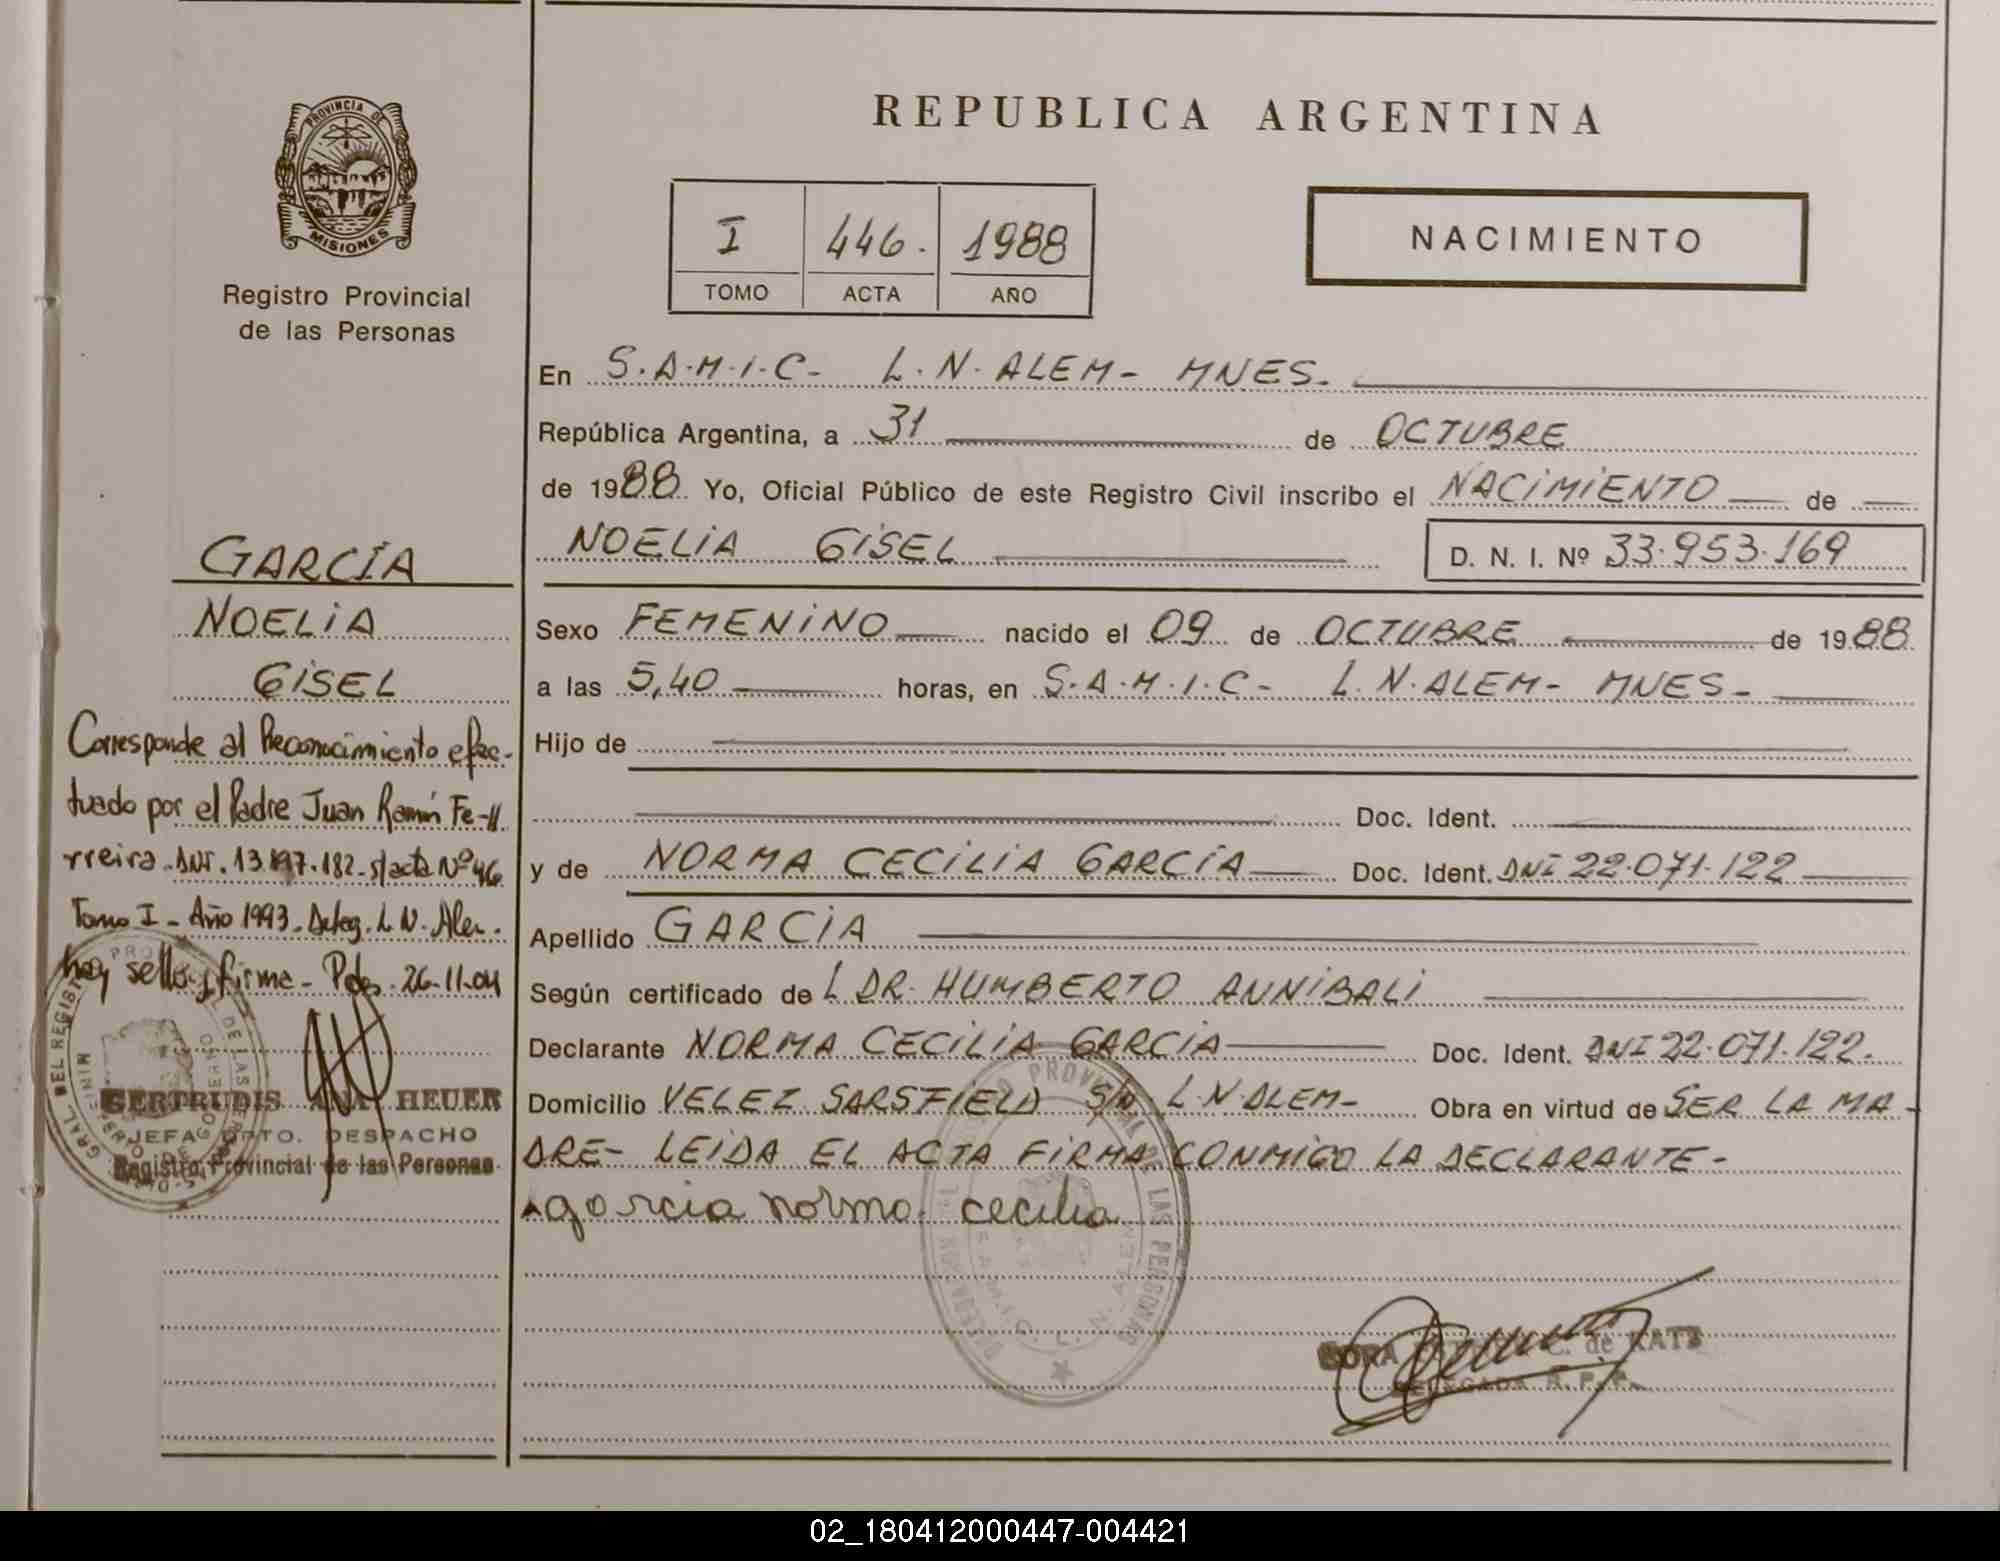 PROVINCIA DE
MISIONES
Registro Provincial
de las Personas
REPUBLICA ARGENTINA
I 446. 1988
TOMO ACTA AÑO
NACIMIENTO
En S.A.M.I.C- L.N.ALEM- MNES-
República Argentina, a 31 de OCTUBRE
de 1988 Yo, Oficial Público de este Registro Civil inscribo el NACIMIENTO de
NOELIA GISEL D. N. I. Nº 33.953.169
Sexo FEMENINO nacido el 09 de OCTUBRE de 1988
a las 5,40 horas, en S.A.M.I.C- L.N.ALEM- MNES-
Hijo de
Doc. Ident.
y de NORMA CECILIA GARCÍA Doc. Ident. DNI 22.071.122
Apellido GARCIA
Según certificado de L DR. HUMBERTO ANNIBALI
Declarante NORMA CECILIA GARCIA Doc. Ident. DNI 22.071.122.
Domicilio VELEZ SARSFIELD S/N L.N.ALEM- Obra en virtud de SER LA MA-
DRE- LEIDA EL ACTA FIRMA CONMIGO LA DECLARANTE-
garcia norma cecilia
C. de KATZ
DELEGADA R. P. P.
GARCÍA
NOELIA
GISEL
Corresponde al Reconocimiento efec-
tuado por el Padre Juan Ramón Fe-
rreira. DNI. 13.197.182. s/acta Nº 46
Tomo I - Año 1993. Deleg. L.N. Alem.
hay sello y firma - Pdas. 26-11-04
GERTRUDIS ANA HEUER
JEFA DPTO. DESPACHO
Registro Provincial de las Personas
02_180412000447-004421